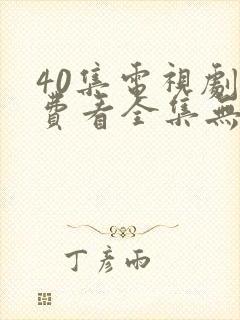 40集電視劇
費看全集無
丁彥雨